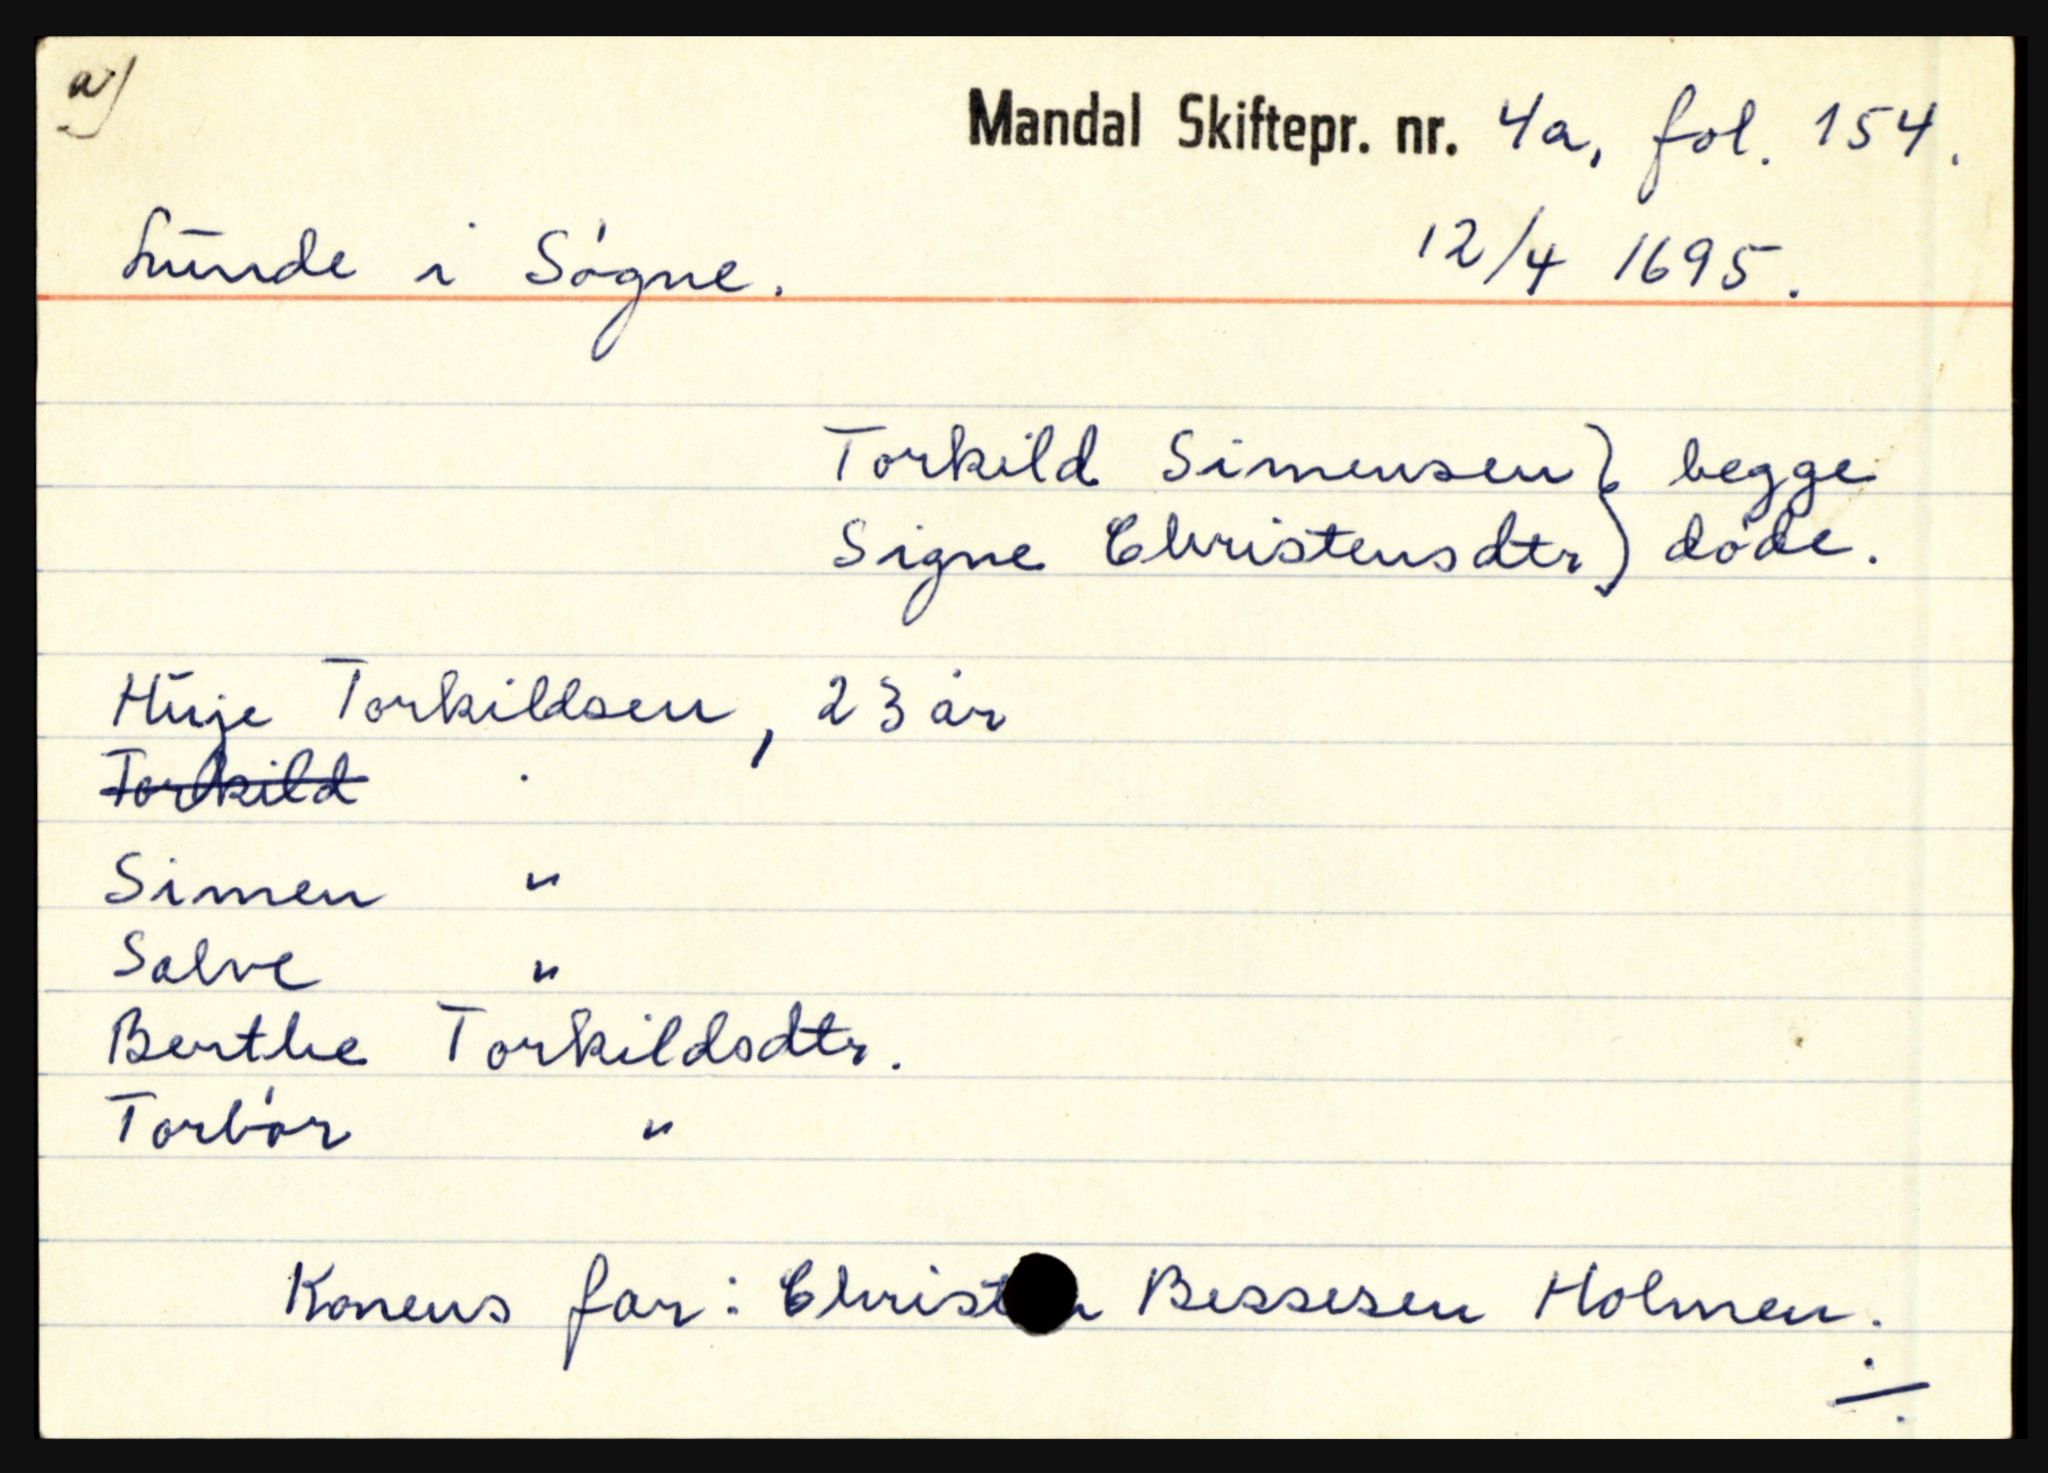 a)
Mandal Skiftepr. nr. 4a, fol. 154.
Lunde i Søgne. 12/4 1695.
Torkild Simensen } begge
Signe Christensdtr } døde.
Huje Torkildsen, 23 år
Torkild
Simen "
Salve "
Berthe Torkildsdtr.
Torbør "
Konens far: Christen Bessesen Holmen.